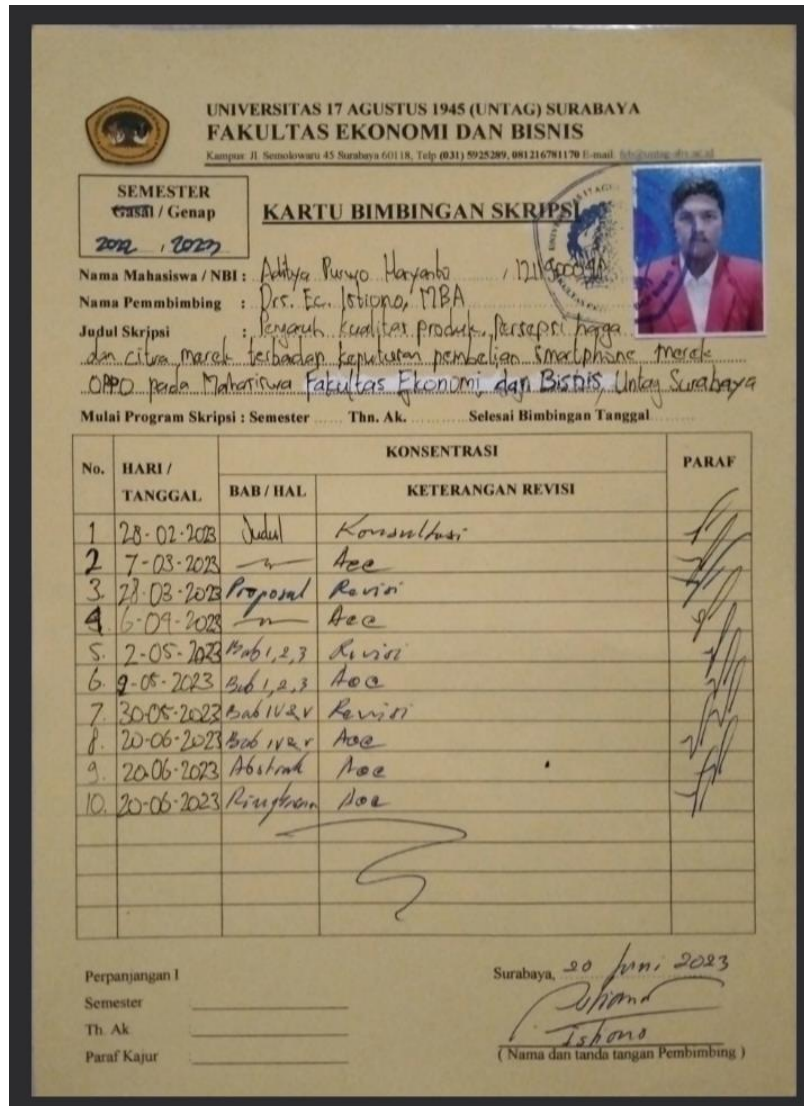 UNIVERSITAS 17 AGUSTUS 1945 (UNTAG) SURABAYA
FAKULTAS EKONOMI DAN BISNIS
Kampus: Jl. Semolowaru 45 Surabaya 60118, Telp (031) 5925289, 081216781170 E-mail:
SEMESTER
Gasal / Genap
2022 , 2023
KARTU BIMBINGAN SKRIPSI
Nama Mahasiswa / NBI : Aditya Purwo Haryanto ,
Nama Pemmbimbing : Drs. Ec. Istiono, MBA
Judul Skripsi : Pengaruh kualitas produk, Persepsi harga
dan citra merek terhadap keputusan pembelian smartphone merek
OPPO pada Mahasiswa Fakultas Ekonomi dan Bisnis, Untag Surabaya
Mulai Program Skripsi : Semester ...... Thn. Ak. .............. Selesai Bimbingan Tanggal
No. HARI / TANGGAL KONSENTRASI PARAF
BAB / HAL KETERANGAN REVISI
1 28-02-2023 Judul Konsultasi
2 7-03-2023 Acc
3. 28-03-2023 Proposal Revisi
4. 6-04-2023 Acc
5. 2-05-2023 Bab 1, 2, 3 Revisi
6. 9-05-2023 Bab 1, 2, 3 Acc
7. 30-05-2023 Bab IV & V Revisi
8. 20-06-2023 Bab IV & V Acc
9. 20-06-2023 Abstrak Acc
10. 20-06-2023 Acc
Perpanjangan I
Semester
Th. Ak
Paraf Kajur
Surabaya, 20 Juni 2023
Istiono
( Nama dan tanda tangan Pembimbing )